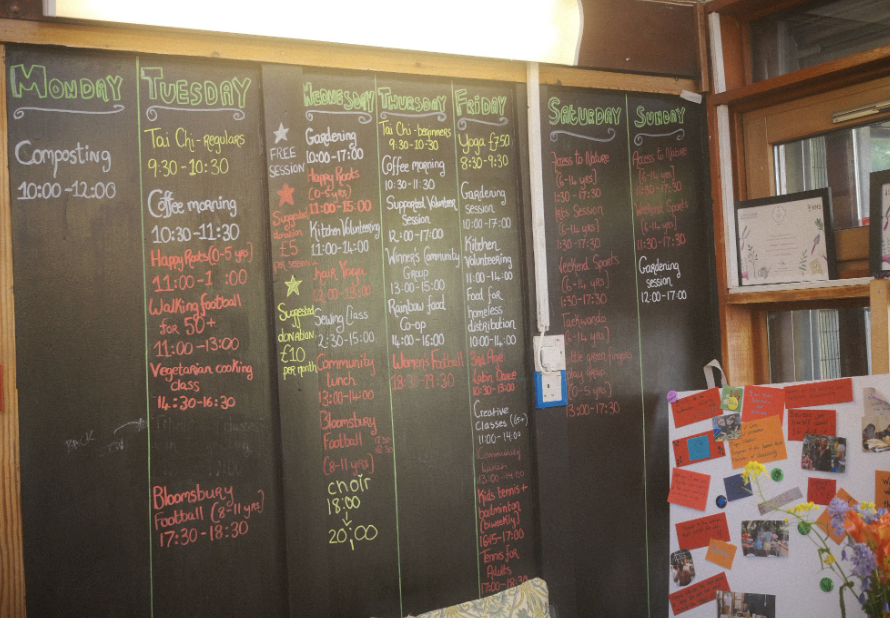 MONDAY
Composting
10:00-12:00
TUESDAY
Tai Chi - regulars
9:30-10:30
Coffee morning
10:30-11:30
Happy Roots (0-5 yrs)
11:00-1 :00
Walking football
for 50+
11:00-13:00
Vegetarian cooking
class
14:30-16:30
Bloomsbury
Football (8-11 yrs)
17:30-18:30
FREE
SESSION
Suggested
donation
£5
per session
Suggested
donation
£10
per month
WEDNESDAY
Gardening
10:00-17:00
Happy Roots
(0-5 yrs)
11:00-15:00
Kitchen Volunteering
11:00-14:00
Hair Yoga
Sewing Class
2:30-15:00
Community
lunch
13:00-14:00
Bloomsbury
Football
(8-11 yrs)
choir
18:00
20:00
THURSDAY
Tai Chi - beginners
9:30-10:30
Coffee morning
10:30-11:30
Supported Volunteer
Session
12:00-17:00
Winner's Community
Group
13:00-15:00
Rainbow food
Co-op
14:00-16:00
Women's Football
18:30-19:30
FRIDAY
Yoga £7.50
8:30-9:30
Gardening
session
10:00-17:00
Kitchen
Volunteering
11:00-14:00
Food for
homeless
distribution
10:00-14:00
3rd Age
Latin Dance
10:30-13:00
Creative
Classes (61+)
11:00-14:00
Community
lunch
13:00-14:00
Kids tennis +
badminton
(biweekly)
16:15-17:00
Tennis for
Adults
17:00-18:30
SATURDAY
Access to Nature
(6-14 yrs)
1:30-17:30
Session
(6-14 yrs)
1:30-17:30
Weekend Sports
(6-14 yrs)
1:30-17:30
Taekwondo
(6-14 yrs)
little green fingers
play group
(0-5 yrs)
13:00-17:30
SUNDAY
Access to Nature
(6-14 yrs)
11:30-17:30
Weekend Sports
(6-14 yrs)
11:30-17:30
Gardening
session
12:00-17:00